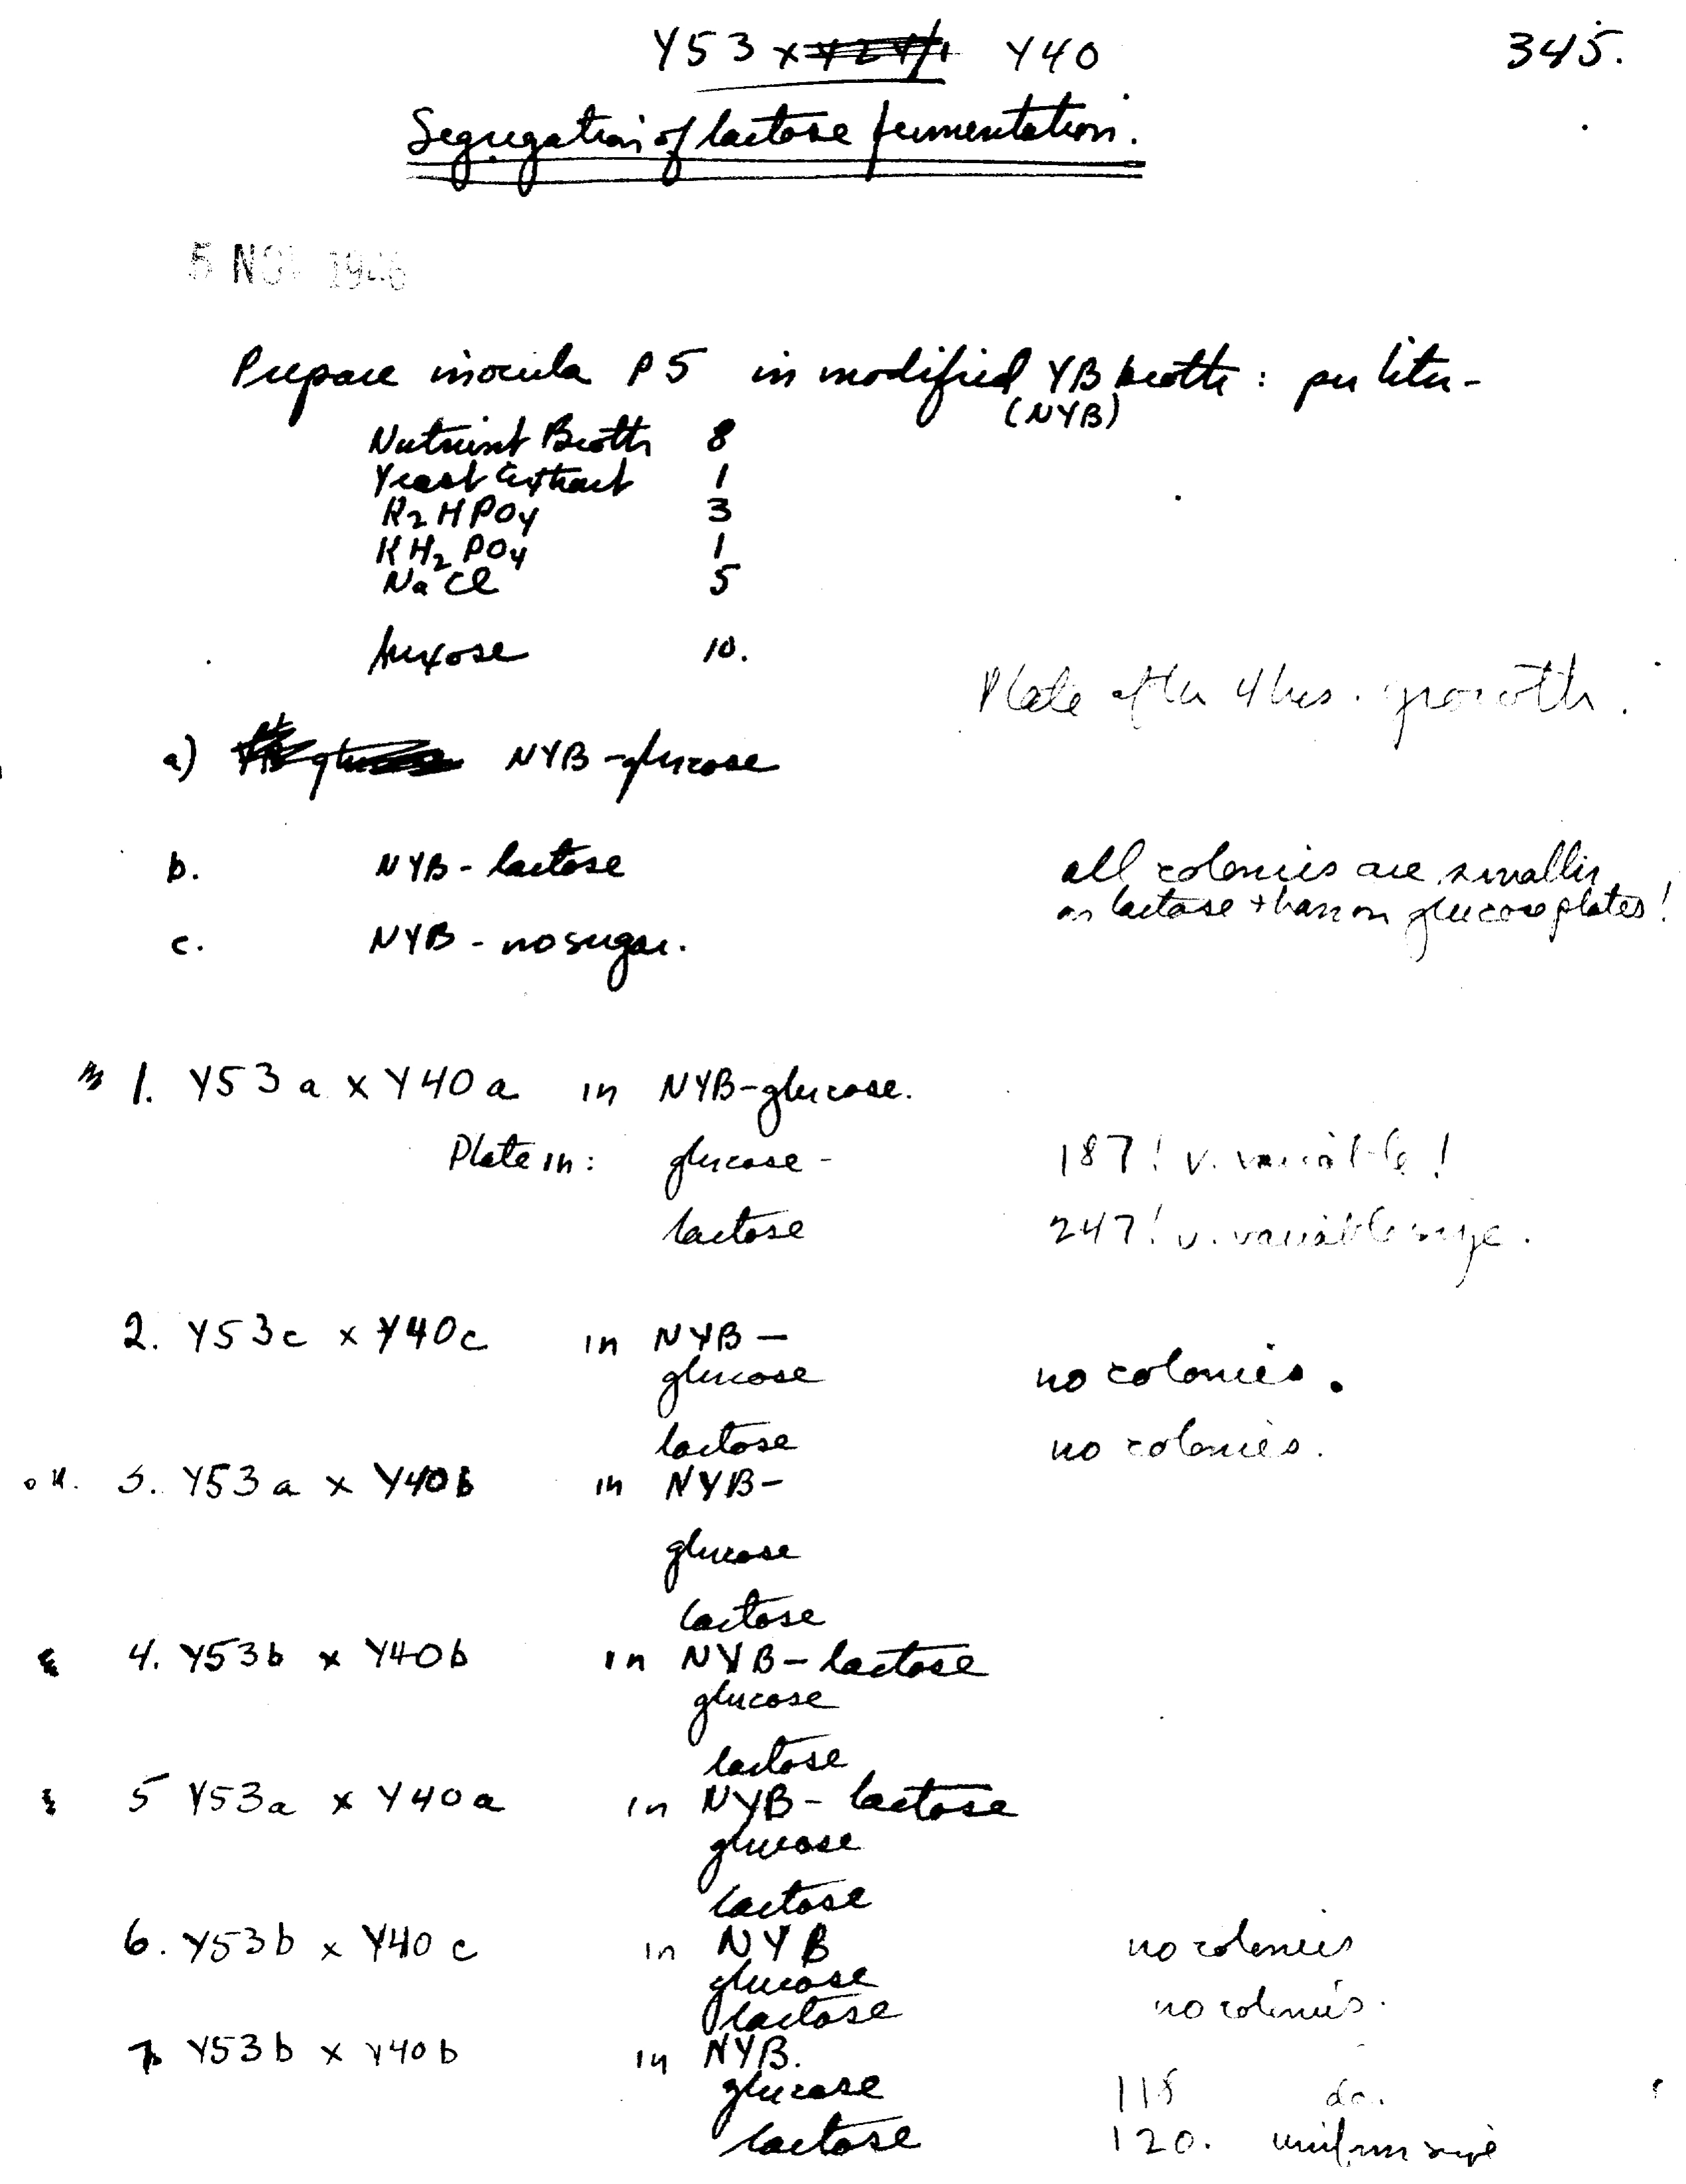 Y53 x Y40
345.
Segregation of lactose fermentation.
5 NOV 1946
Prepare inocula P5 in modified YB broth : per liter-
(NYB)
Nutrient Broth 8
Yeast Extract 1
K2HPO4 3
KH2PO4 1
NaCl 5
10.
Plate after 4 hrs. growth.
a) NYB-glucose
b. NYB-lactose
all colonies are smaller
on lactose than on glucose plates!
c. NYB-no sugar.
1. Y53a x Y40a in NYB-glucose.
Plate in: glucose - 187! v. variable!
lactose 247! v. variable size.
2. Y53c x Y40c in NYB-
glucose no colonies.
lactose no colonies.
o.K. 3. Y53a x Y40b in NYB-
glucose
lactose
4. Y53b x Y40b in NYB-lactose
glucose
lactose
5 Y53a x Y40a in NYB-lactose
glucose
lactose
6. Y53b x Y40c in NYB no colonies
glucose
lactose no colonies.
7. Y53b x Y40b in NYB.
glucose 118 do.
lactose 120. uniform size